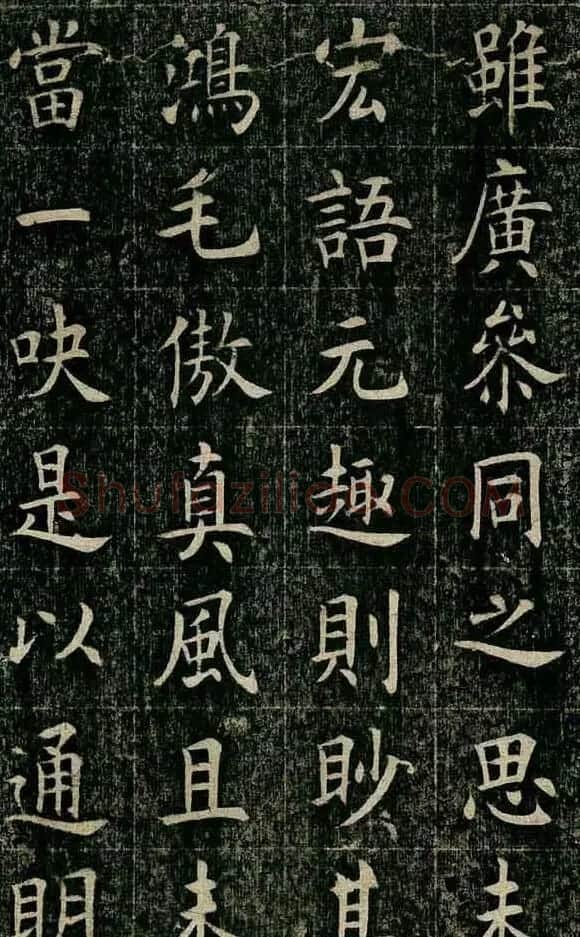 雖廣叅同之思未
宏語元趣則眇其
鴻毛傲真風且未
當一吷是以通明
Shufaziliao.COM